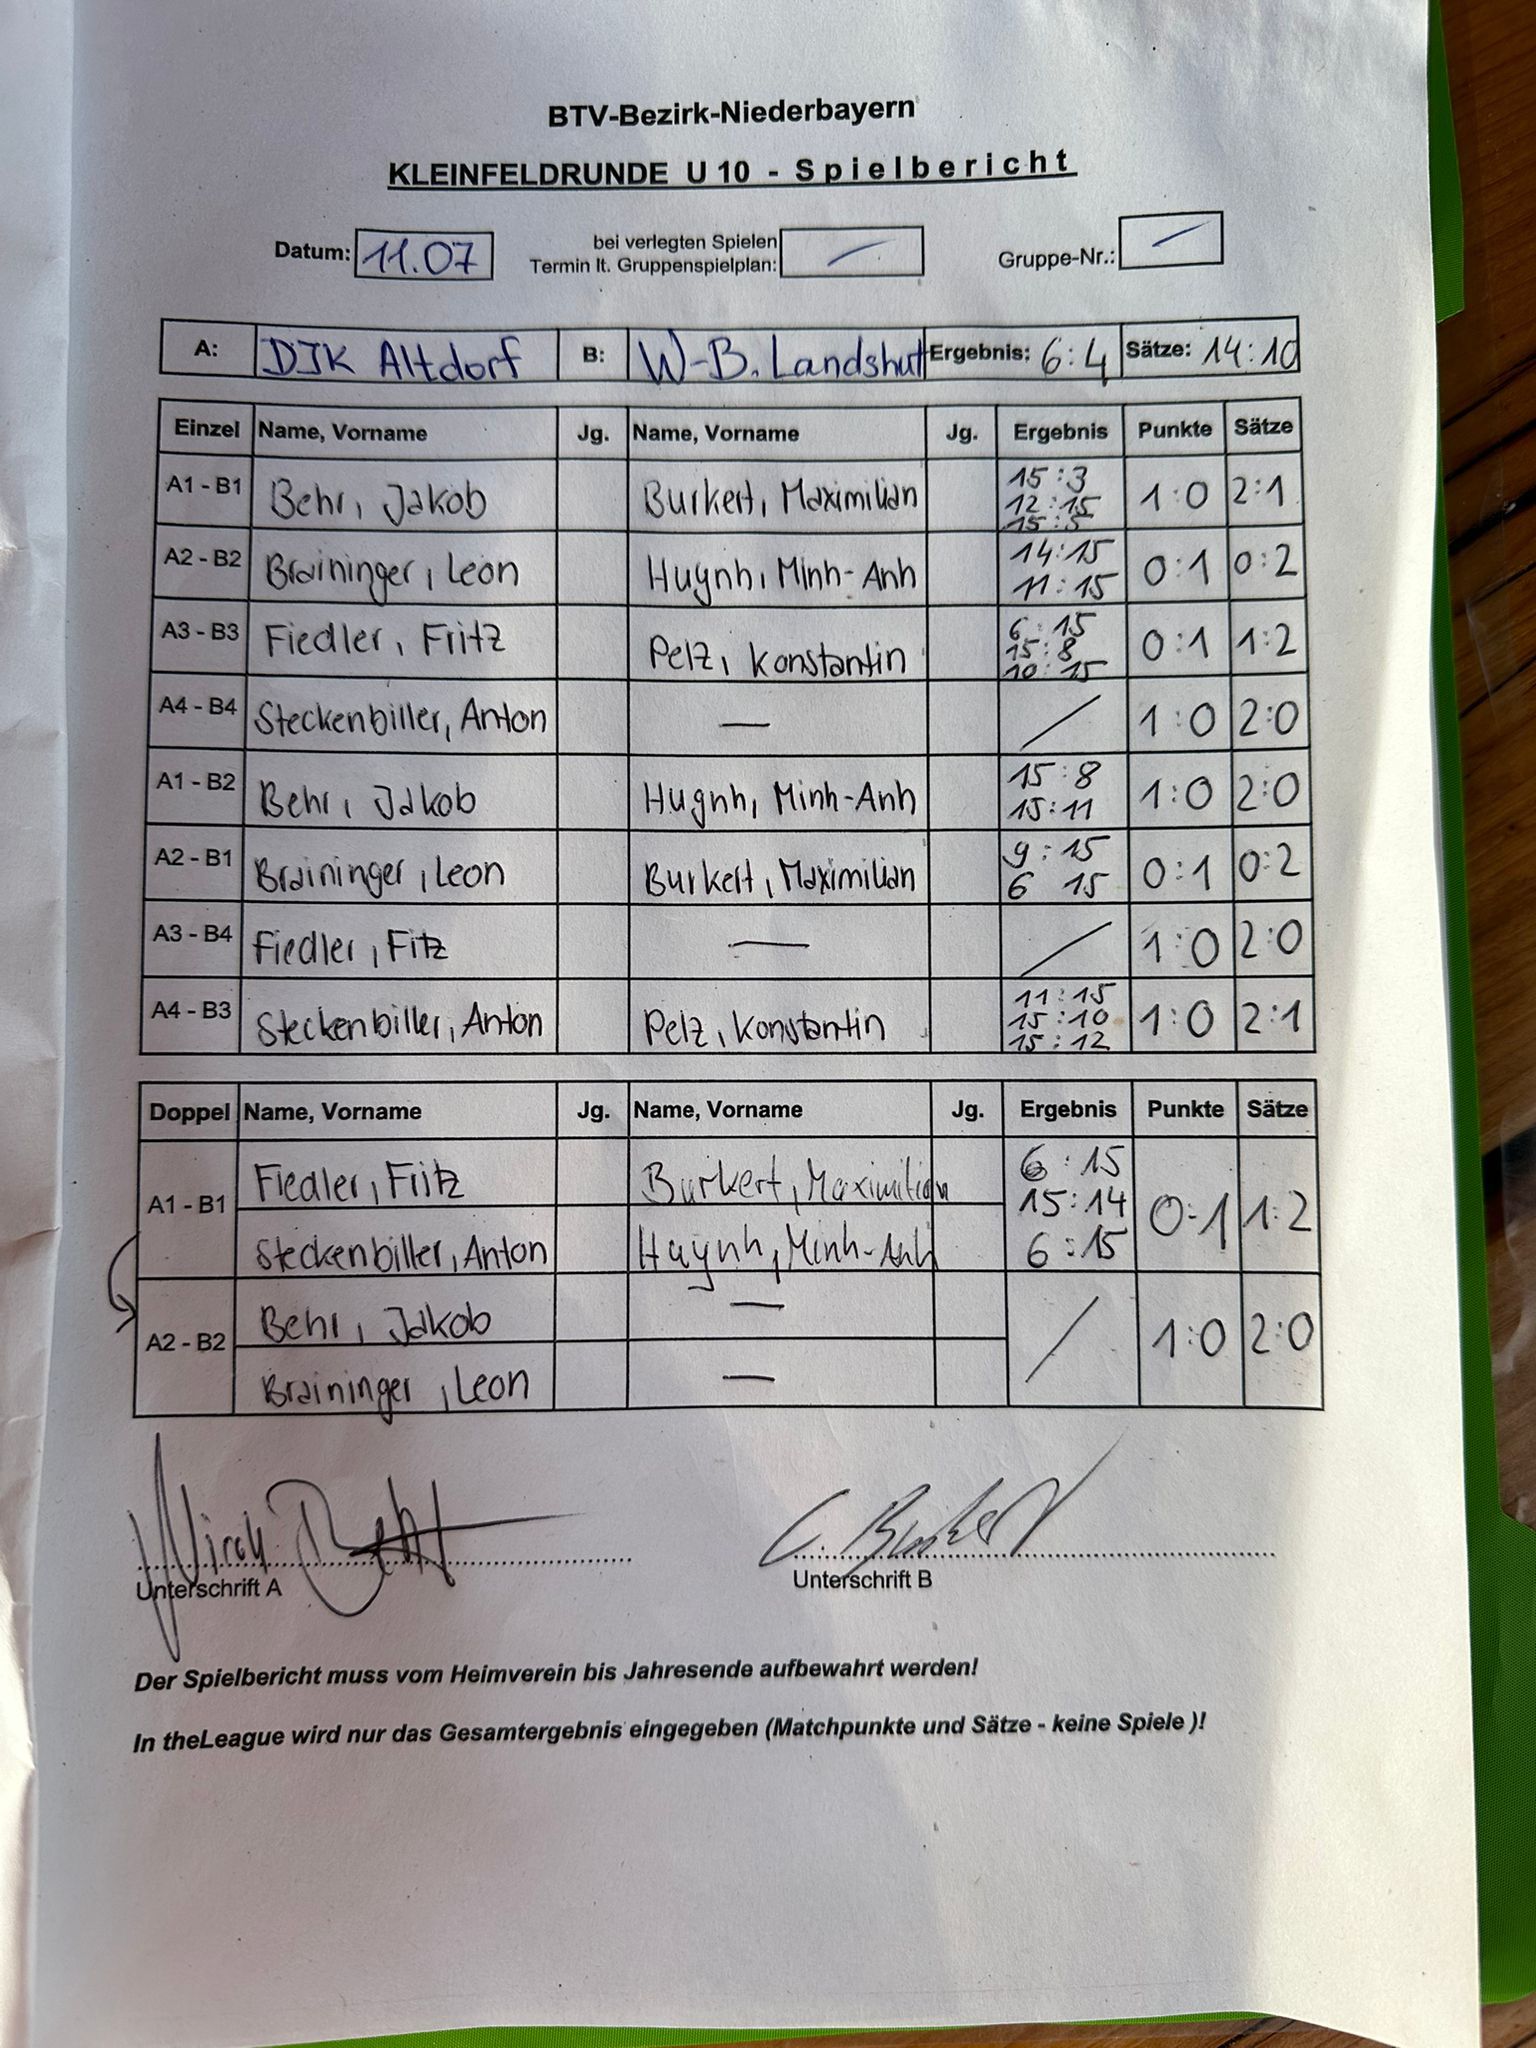 BTV-Bezirk-Niederbayern
KLEINFELDRUNDE U 10 - Spielbericht
Datum: 11.07 bei verlegten Spielen Termin lt. Gruppenspielplan: — Gruppe-Nr.: —
A: DJK Altdorf B: W-B. Landshut Ergebnis: 6:4 Sätze: 14:10
Einzel Name, Vorname Jg. Name, Vorname Jg. Ergebnis Punkte Sätze
A1 - B1 Behr, Jakob Burkert, Maximilian 15:3 12:15 15:5 1:0 2:1
A2 - B2 Braininger, Leon Huynh, Minh-Anh 14:15 11:15 0:1 0:2
A3 - B3 Fiedler, Fritz Pelz, Konstantin 6:15 15:8 10:15 0:1 1:2
A4 - B4 Steckenbiller, Anton — / 1:0 2:0
A1 - B2 Behr, Jakob Huynh, Minh-Anh 15:8 15:11 1:0 2:0
A2 - B1 Braininger, Leon Burkert, Maximilian 9:15 6 15 0:1 0:2
A3 - B4 Fiedler, Fitz — / 1:0 2:0
A4 - B3 Steckenbiller, Anton Pelz, Konstantin 11:15 15:10 15:12 1:0 2:1
Doppel Name, Vorname Jg. Name, Vorname Jg. Ergebnis Punkte Sätze
A1 - B1 Fiedler, Fritz Burkert, Maximilian 6:15 15:14 6:15 0:1 1:2
Steckenbiller, Anton Huynh, Minh-Anh
A2 - B2 Behr, Jakob — / 1:0 2:0
Braininger, Leon —
Unterschrift A Unterschrift B
Der Spielbericht muss vom Heimverein bis Jahresende aufbewahrt werden!
In theLeague wird nur das Gesamtergebnis eingegeben (Matchpunkte und Sätze - keine Spiele )!